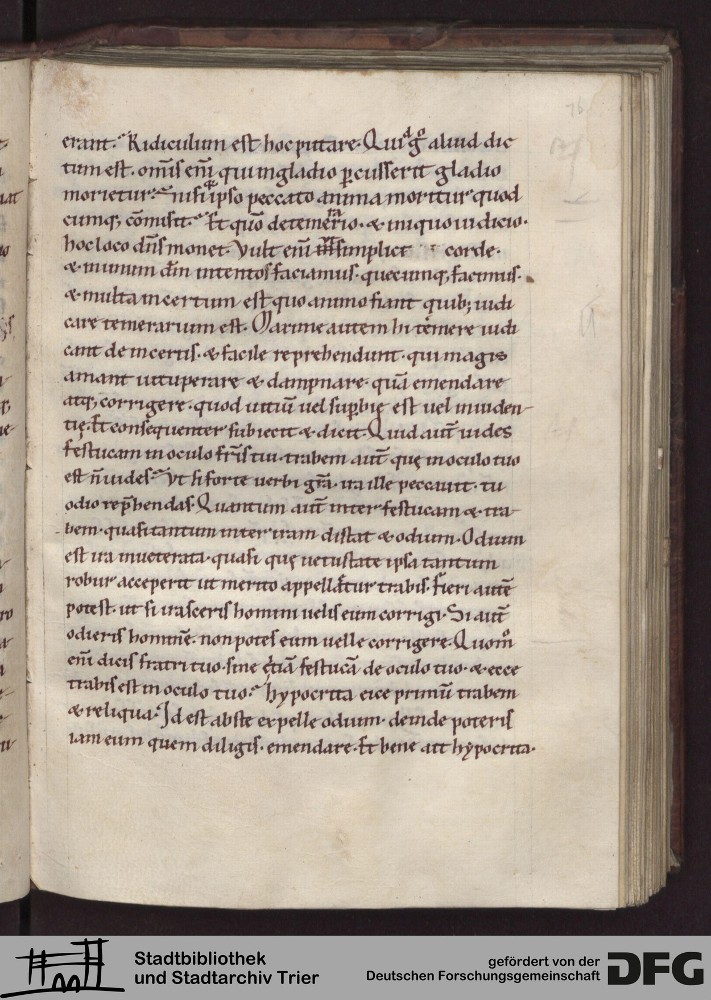 erant. Ridiculum est hoc putare. Quid gͦ aliud dic
tum est. om̅is eni̅ qui in gladio ꝑcusserit gladio
morietur. nisi q̅ ipso peccato anima moritur quod
cumq; co̅misit. Et quo̅ de temerͣrio. & iniquo iudicio.
hoc loco dn̅s monet. Vult eni̅ simplici corde.
& unum dm̅ intentos faciamus. quecumq; facimus.
& multa incertum est quo animo fiant quib; iudi
care temerarium est. Maxime autem hi temere iudi
cant de incertis. & facile reprehendunt. qui magis
amant uituperare & dampnare. qua̅ emendare
atq; corrigere. quod uitiu̅ uel suꝑbię est uel inuiden-
tię. Et consequenter subiecit & dicit. Quid aut̅ uides
festucam in oculo fr̅is tui. trabem aut̅ quę in oculo tuo
est n̅ uides. Vt si forte uerbi gr̅a. ira ille peccauit. tu
odio rep̅hendas. Quantum aut̅ inter festucam & tra-
bem. quasi tantum inter iram distat & odium. Odium
est ira inueterata. quasi quę uetustate ipsa tantum
robur acceperit ut merito appelletur trabis. Fieri aute̅
potest. ut si irasceris homini uelis eum corrigi. Si aut̅
odieris homine̅. non potes eum uelle corrigere. Quomͦ
eni̅ dicis fratri tuo. sine eicia̅ festuca̅ de oculo tuo. & ecce
trabis est in oculo tuo. hypocrita eice primu̅ trabem
& reliqua. Id est abs te expelle odium. deinde poteris
iam eum quem diligis. emendare. Et bene ait hypocrita.
Stadtbibliothek
und Stadtarchiv Trier
gefördert von der
Deutschen Forschungsgemeinschaft
DFG